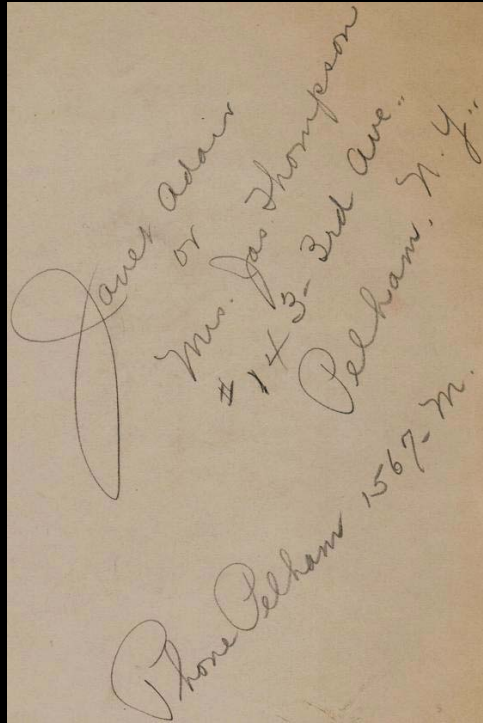 Janet Adair
or
Mrs. Jas. Thompson
#143-3rd Ave.,
Pelham, N.Y.,
Phone Pelham 1567-M.